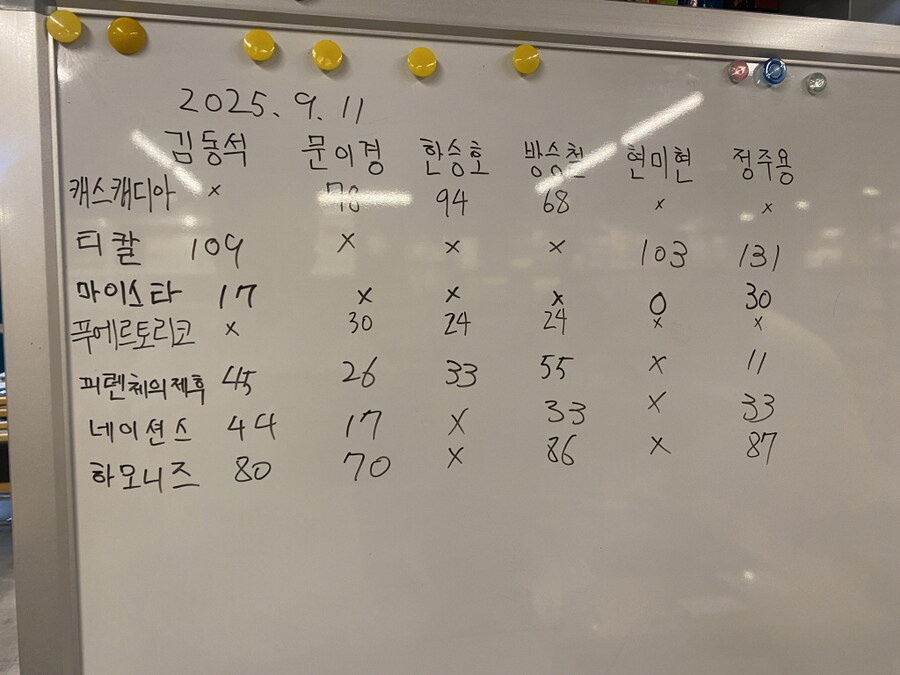 2025. 9. 11
김동석 문이경 한승호 방승천 현미현 정주용
캐스캐디아 x 78 94 68 x x
티칼 109 x x x 103 131
마이스타 17 x x x 0 30
푸에르토리코 x 30 24 24 x x
피렌체의제후 45 26 33 55 x 11
네이션스 44 17 x 33 x 33
하모니즈 80 70 x 86 x 87